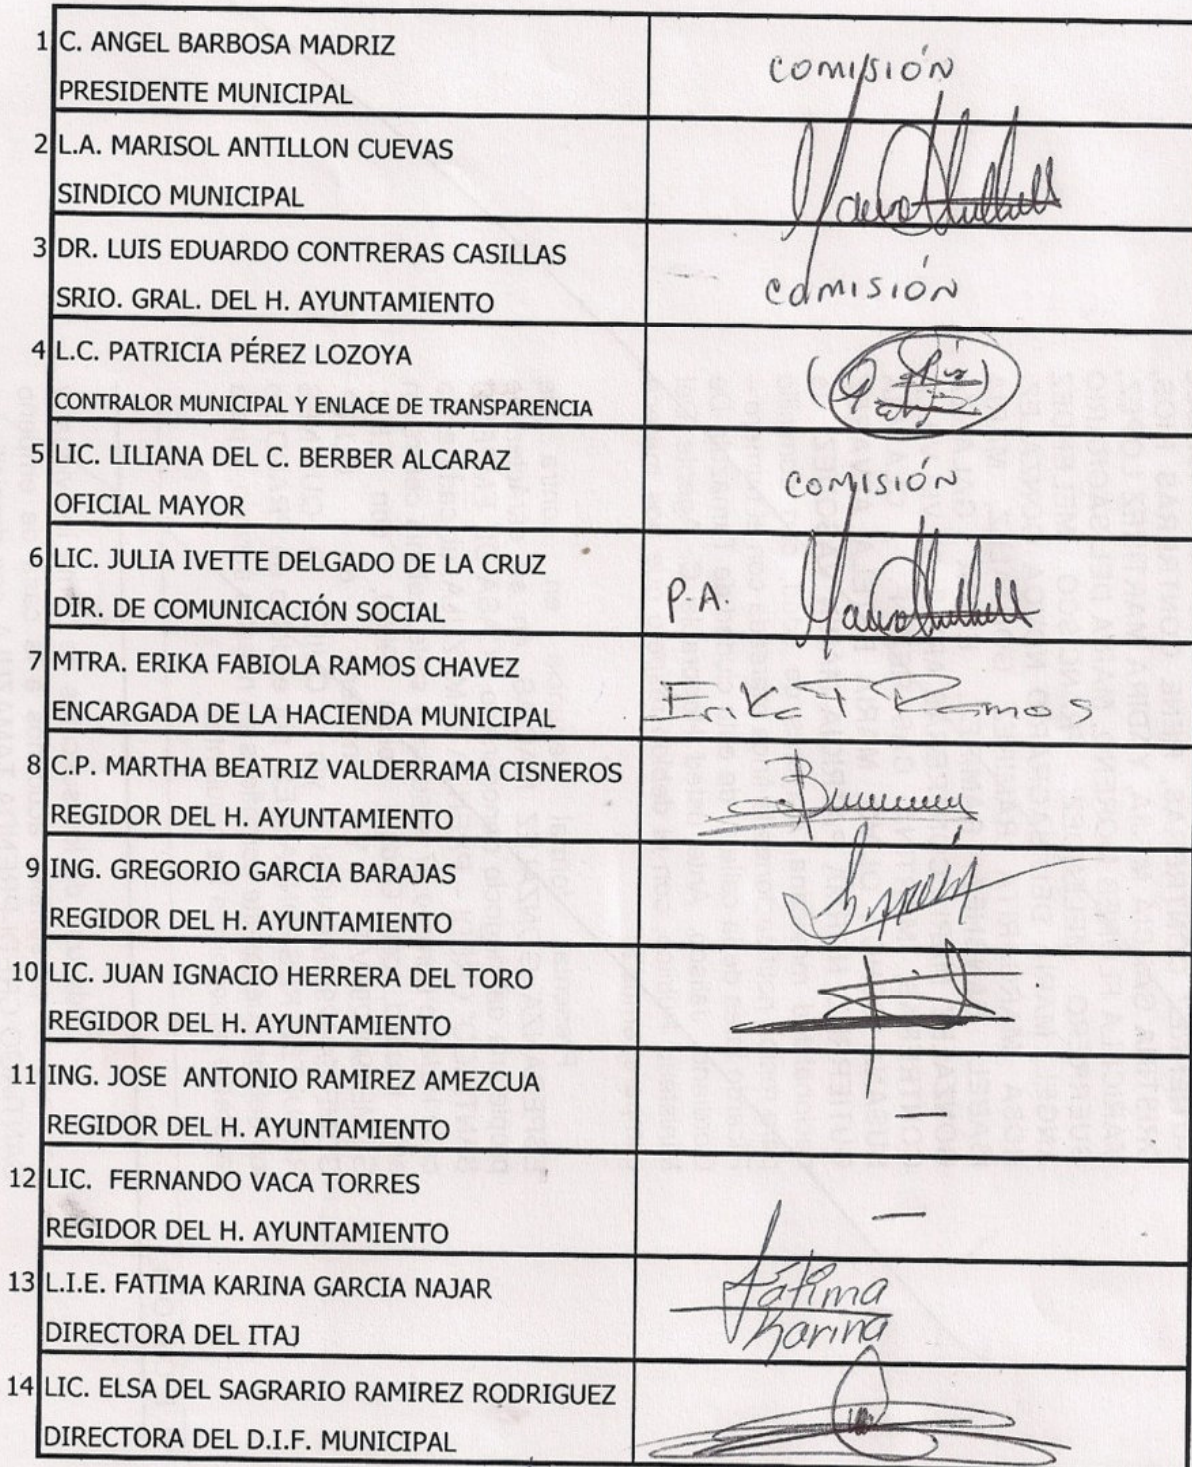 1 C. ANGEL BARBOSA MADRIZ
PRESIDENTE MUNICIPAL
COMISIÓN
2 L.A. MARISOL ANTILLON CUEVAS
SINDICO MUNICIPAL
3 DR. LUIS EDUARDO CONTRERAS CASILLAS
SRIO. GRAL. DEL H. AYUNTAMIENTO
COMISIÓN
4 L.C. PATRICIA PÉREZ LOZOYA
CONTRALOR MUNICIPAL Y ENLACE DE TRANSPARENCIA
5 LIC. LILIANA DEL C. BERBER ALCARAZ
OFICIAL MAYOR
COMISIÓN
6 LIC. JULIA IVETTE DELGADO DE LA CRUZ
DIR. DE COMUNICACIÓN SOCIAL
P.A.
7 MTRA. ERIKA FABIOLA RAMOS CHAVEZ
ENCARGADA DE LA HACIENDA MUNICIPAL
Erika F Ramos
8 C.P. MARTHA BEATRIZ VALDERRAMA CISNEROS
REGIDOR DEL H. AYUNTAMIENTO
9 ING. GREGORIO GARCIA BARAJAS
REGIDOR DEL H. AYUNTAMIENTO
10 LIC. JUAN IGNACIO HERRERA DEL TORO
REGIDOR DEL H. AYUNTAMIENTO
11 ING. JOSE ANTONIO RAMIREZ AMEZCUA
REGIDOR DEL H. AYUNTAMIENTO
—
12 LIC. FERNANDO VACA TORRES
REGIDOR DEL H. AYUNTAMIENTO
—
13 L.I.E. FATIMA KARINA GARCIA NAJAR
DIRECTORA DEL ITAJ
Fátima
Karina
14 LIC. ELSA DEL SAGRARIO RAMIREZ RODRIGUEZ
DIRECTORA DEL D.I.F. MUNICIPAL